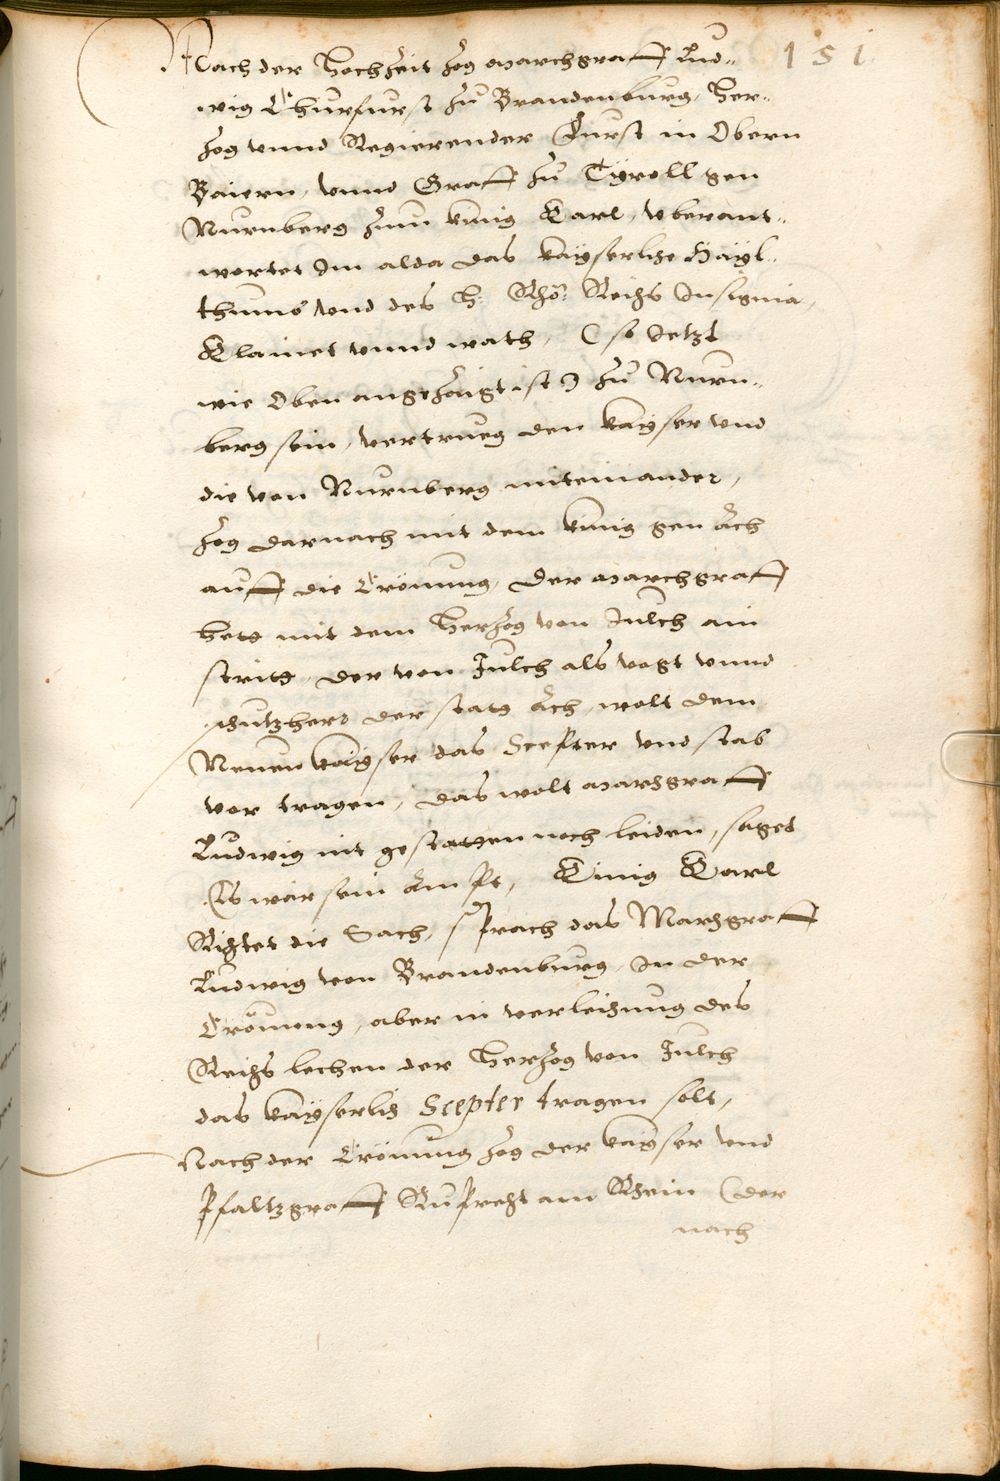 151
Nach der Hochzeit zog marchgraff Lud-
wig Churfurst zu Brandenburg, Her-
zog vnnd Regierender Furst in Obern
Baiern, vnnd Graff zu Tyroll gen
Nurnberg zum künig Carl, vberant-
wortet Im alda das kayserliche Hayl-
thumb vnd des H: Rhö: Reichs Insignia,
Klainet vnnd wath, (so Jetzt
wie Oben angezaigt ist) zu Nurn-
berg sein, vertrueg den kayser vnd
die von Nurnberg miteinander,
zog darnach mit dem künig gen Ach
auff die Crönung, der marchgraff
hett mit dem Herzog von Jülch ain
stritt, der von Jülch als vogt vnnd
schutzherr der statt Ach, wolt dem
Neuen kayser das Scepter vnd stab
vor tragen, das wolt marchgraff
Ludwig nit gestatten noch leiden, saget
Es wär sein Ampt, Künig Carl
Richtet die Sach, sprach das Marchgraff
Ludwig von Brandenburg, In der
Crönung, aber in verleihung des
Reichs lechen der Herzog von Jülch
das kayserlich Scepter tragen solt,
Nach der Crönung zog der kayser vnd
Pfaltzgraff Ruprecht am Rhein (der
nach